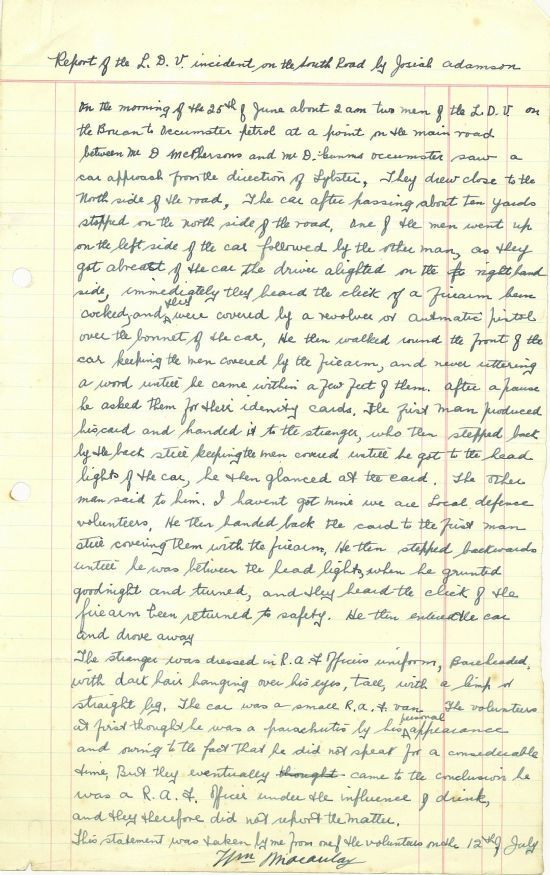 Report of the L. D. V. incident on the South Road by Josiah Adamson
On the morning of the 25th of June about 2 am two men of the L.D.V. on
the Bouan to Occumster petrol at a point on the main road
between Mr D McPhersons and Mr D. Gunns occumster saw a
car approach from the direction of Lybster, They drew close to the
North side of the road, The car after passing about ten yards
stopped on the north side of the road, one of the men went up
on the left side of the car followed by the other man, as they
got abreast of the car the driver alighted on the right hand
side, immediately they heard the click of a firearm been
cocked, and they were covered by a revolver or automatic pistol
over the bonnet of the car, He then walked round the front of the
car keeping the men covered by the firearm, and never uttering
a word untill he came within a few feet of them. after a pause
he asked them for their idenity cards. The first man produced
his card and handed it to the stranger, who then stepped back
by the back still keeping the men covered untill he got to the head
lights of the car, he then glanced at the card. The other
man said to him. I havent got mine we are Local defence
volunteers, He then handed back the card to the first man
still covering them with the firearm, He then stepped backwards
untill he was between the head lights, when he grunted
goodnight and turned, and they heard the click of the
firearm been returned to safety. He then entered the car
and drove away
The stranger was dressed in R.A.F Officers uniform, Bareheaded,
with dark hair hanging over his eyes, tall, with a limp or
straight leg, The car was a small R.A.F. van The volunteers
at first thought he was a parachutis by his personal appearance
and owing to the fact that he did not speak for a considerable
time, But they eventually thought came to the conclusion he
was a R.A.F. Officer under the influence of drink,
and they therefore did not report the matter.
This statement was taken by me from one of the volunteers on the 12th of July
Wm Macaulay